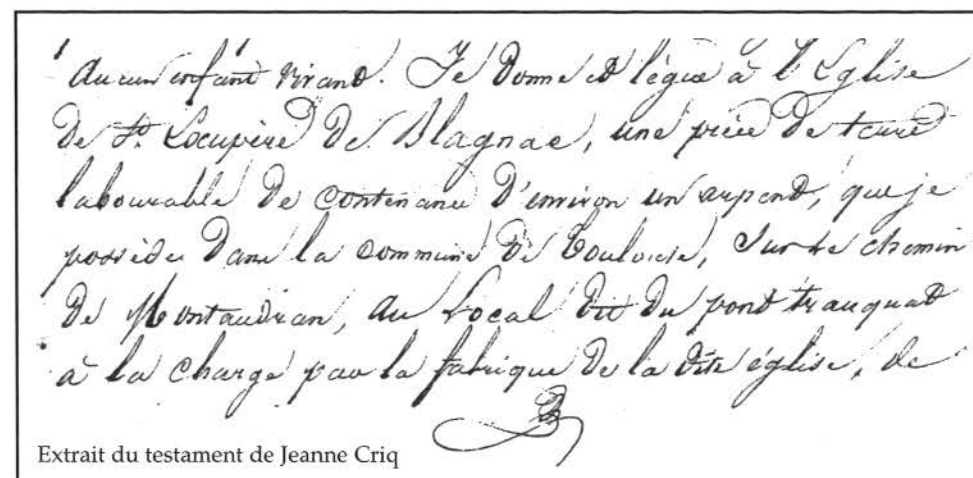 aucun enfant vivant. Je donne et lègue à l'Eglise
de St. Exupère de Blagnac, une pièce de terre
labourable de contenance d'environ un arpend, que je
possède dans la commune de Toulouse, sur le chemin
de Montaudran, au local dit du pont trauquat
à la charge par la fabrique de la dite église, de
Extrait du testament de Jeanne Criq